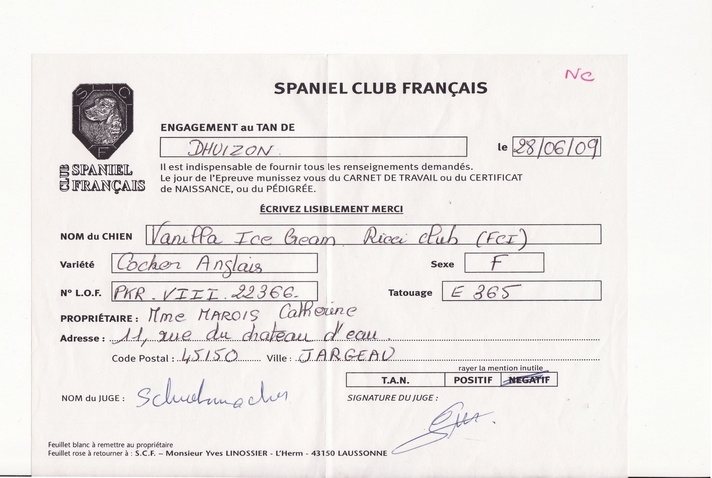 NC
SPANIEL CLUB FRANÇAIS
S C F
CLUB SPANIEL FRANÇAIS
ENGAGEMENT au TAN DE
DHUIZON le 28/06/09
Il est indispensable de fournir tous les renseignements demandés.
Le jour de l'Epreuve munissez vous du CARNET DE TRAVAIL ou du CERTIFICAT
de NAISSANCE, ou du PÉDIGRÉE.
ÉCRIVEZ LISIBLEMENT MERCI
NOM du CHIEN Vanilla Ice Cream Ricci club (FCI)
Variété Cocker Anglais Sexe F
N° L.O.F. PKR.VIII.22366. Tatouage E 365
PROPRIÉTAIRE : Mme MAROIS Catherine
Adresse : 11, rue du chateau d'eau
Code Postal : 45150 Ville : JARGEAU
rayer la mention inutile
T.A.N. POSITIF NEGATIF
NOM du JUGE : Schuhmacher SIGNATURE DU JUGE :
Feuillet blanc à remettre au propriétaire
Feuillet rose à retourner à : S.C.F. – Monsieur Yves LINOSSIER - L'Herm - 43150 LAUSSONNE